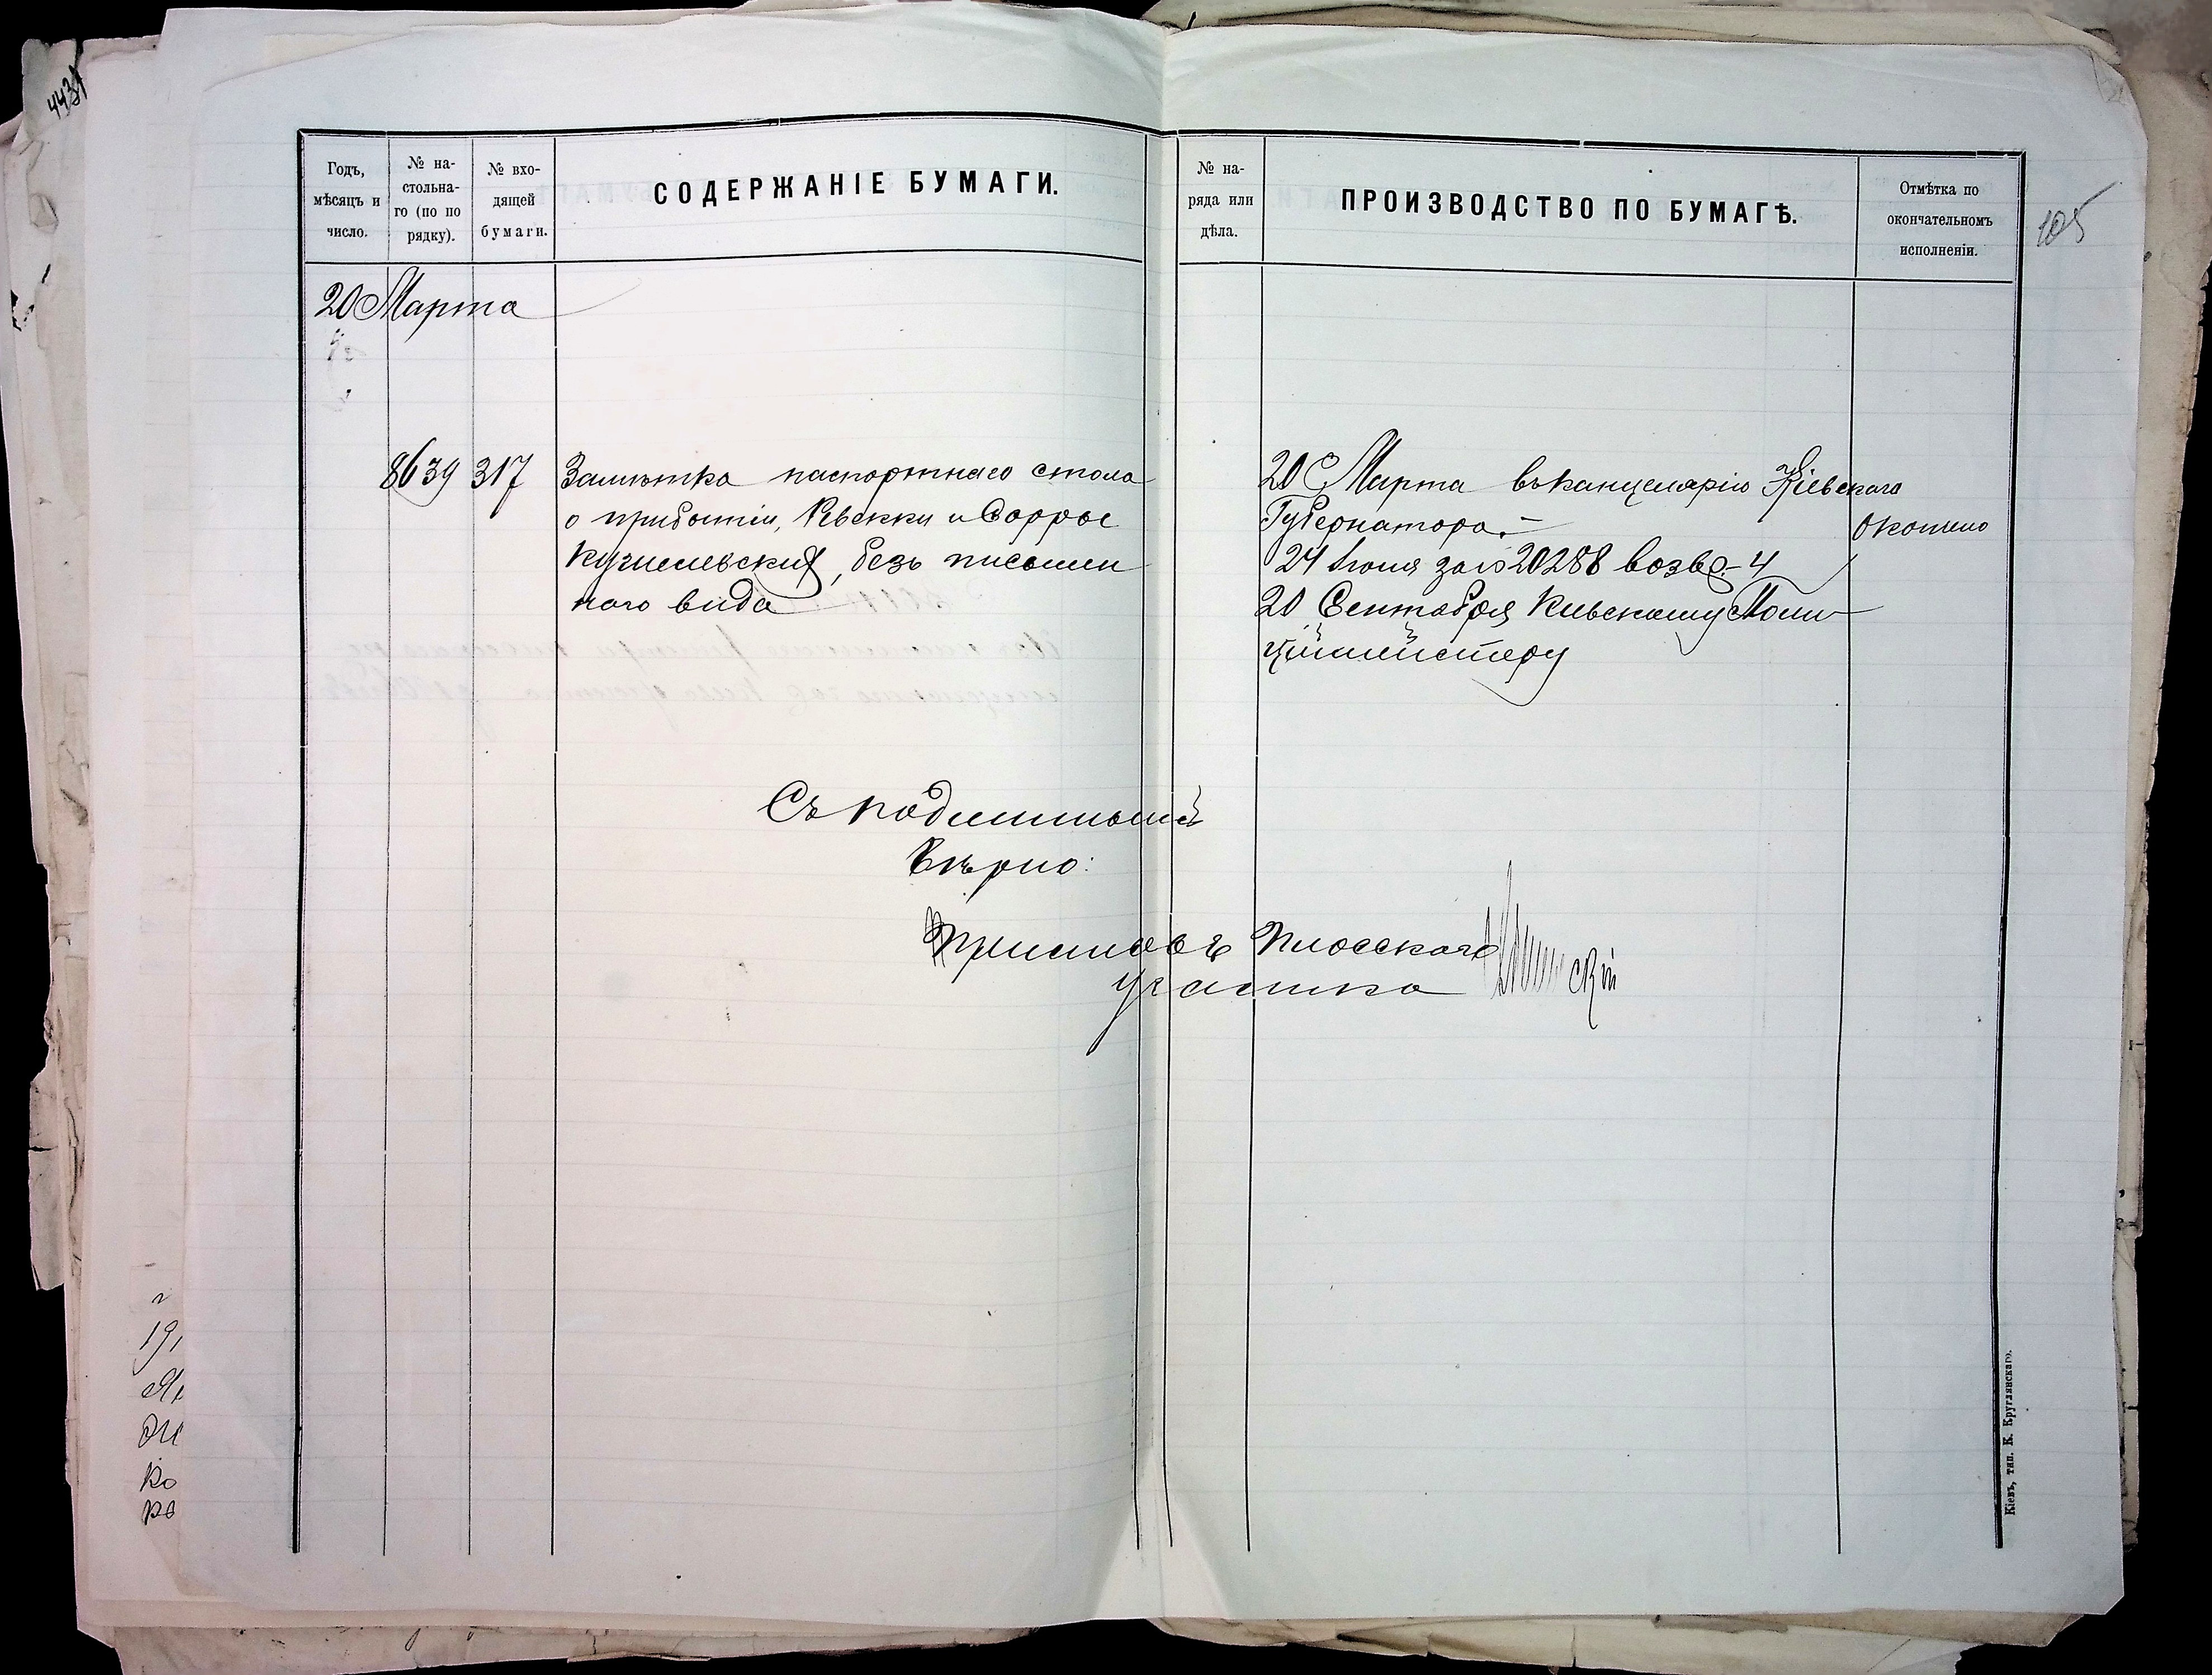 443
105
Годъ,
мѣсяцъ и
число.
№ на-
стольна-
го (по по
рядку).
№ вхо-
дящей
бумаги.
СОДЕРЖАНІЕ БУМАГИ.
№ на-
ряда или
дѣла.
ПРОИЗВОДСТВО ПО БУМАГѢ.
Отмѣтка по
окончательномъ
исполненіи.
20 Марта
8639 317 Замѣтка паспортнаго стола
о прибытіи, Ревекки и Сорры
безъ письмен
наго вида
20 Марта въ канцелярію Кіевскаго
Губернатора.—
24 Іюня за № 20288 возвр. 4
20 Сентября Кіевскому Поли
цiймейстеру
Окончено
Съ подлиннымъ
Вѣрно:
Приставъ Плосскаго
участка
Кіевъ, тип. К. Круглянскаго.
19
ко